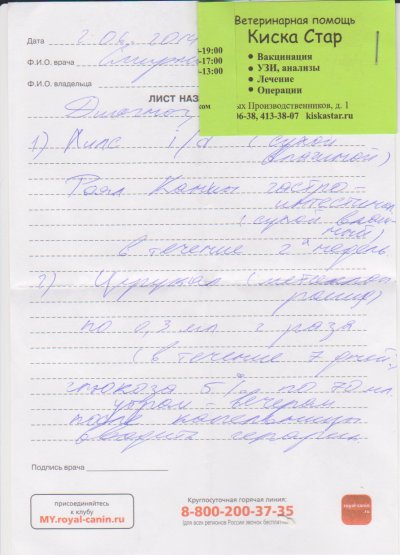 Ветеринарная помощь
Киска Стар
Дата 2 06. 2014
-19:00
• Вакцинация
Ф.И.О. врача
-17:00
• УЗИ, анализы
-13:00
• Лечение
Ф.И.О. владельца
• Операции
ЛИСТ НАЗ
ком
ых Производственников, д. 1
Диагноз
06-38, 413-38-07 kiskastar.ru
1) Хилс i/d (сухой
влажной)
Роял Канин гастро-
интестинал
(сухой влаж-
ный)
в течение 2х недель
2) Церукал (
)
по 0,3 мл 2 раза
(в течение 7 дней)
глюкоза 5% по 70 мл
утром - вечером
после
вводить
Подпись врача
присоединяйтесь
к клубу
MY.royal-canin.ru
Круглосуточная горячая линия:
8-800-200-37-35
(для всех регионов России звонок бесплатный)
royal-canin.ru